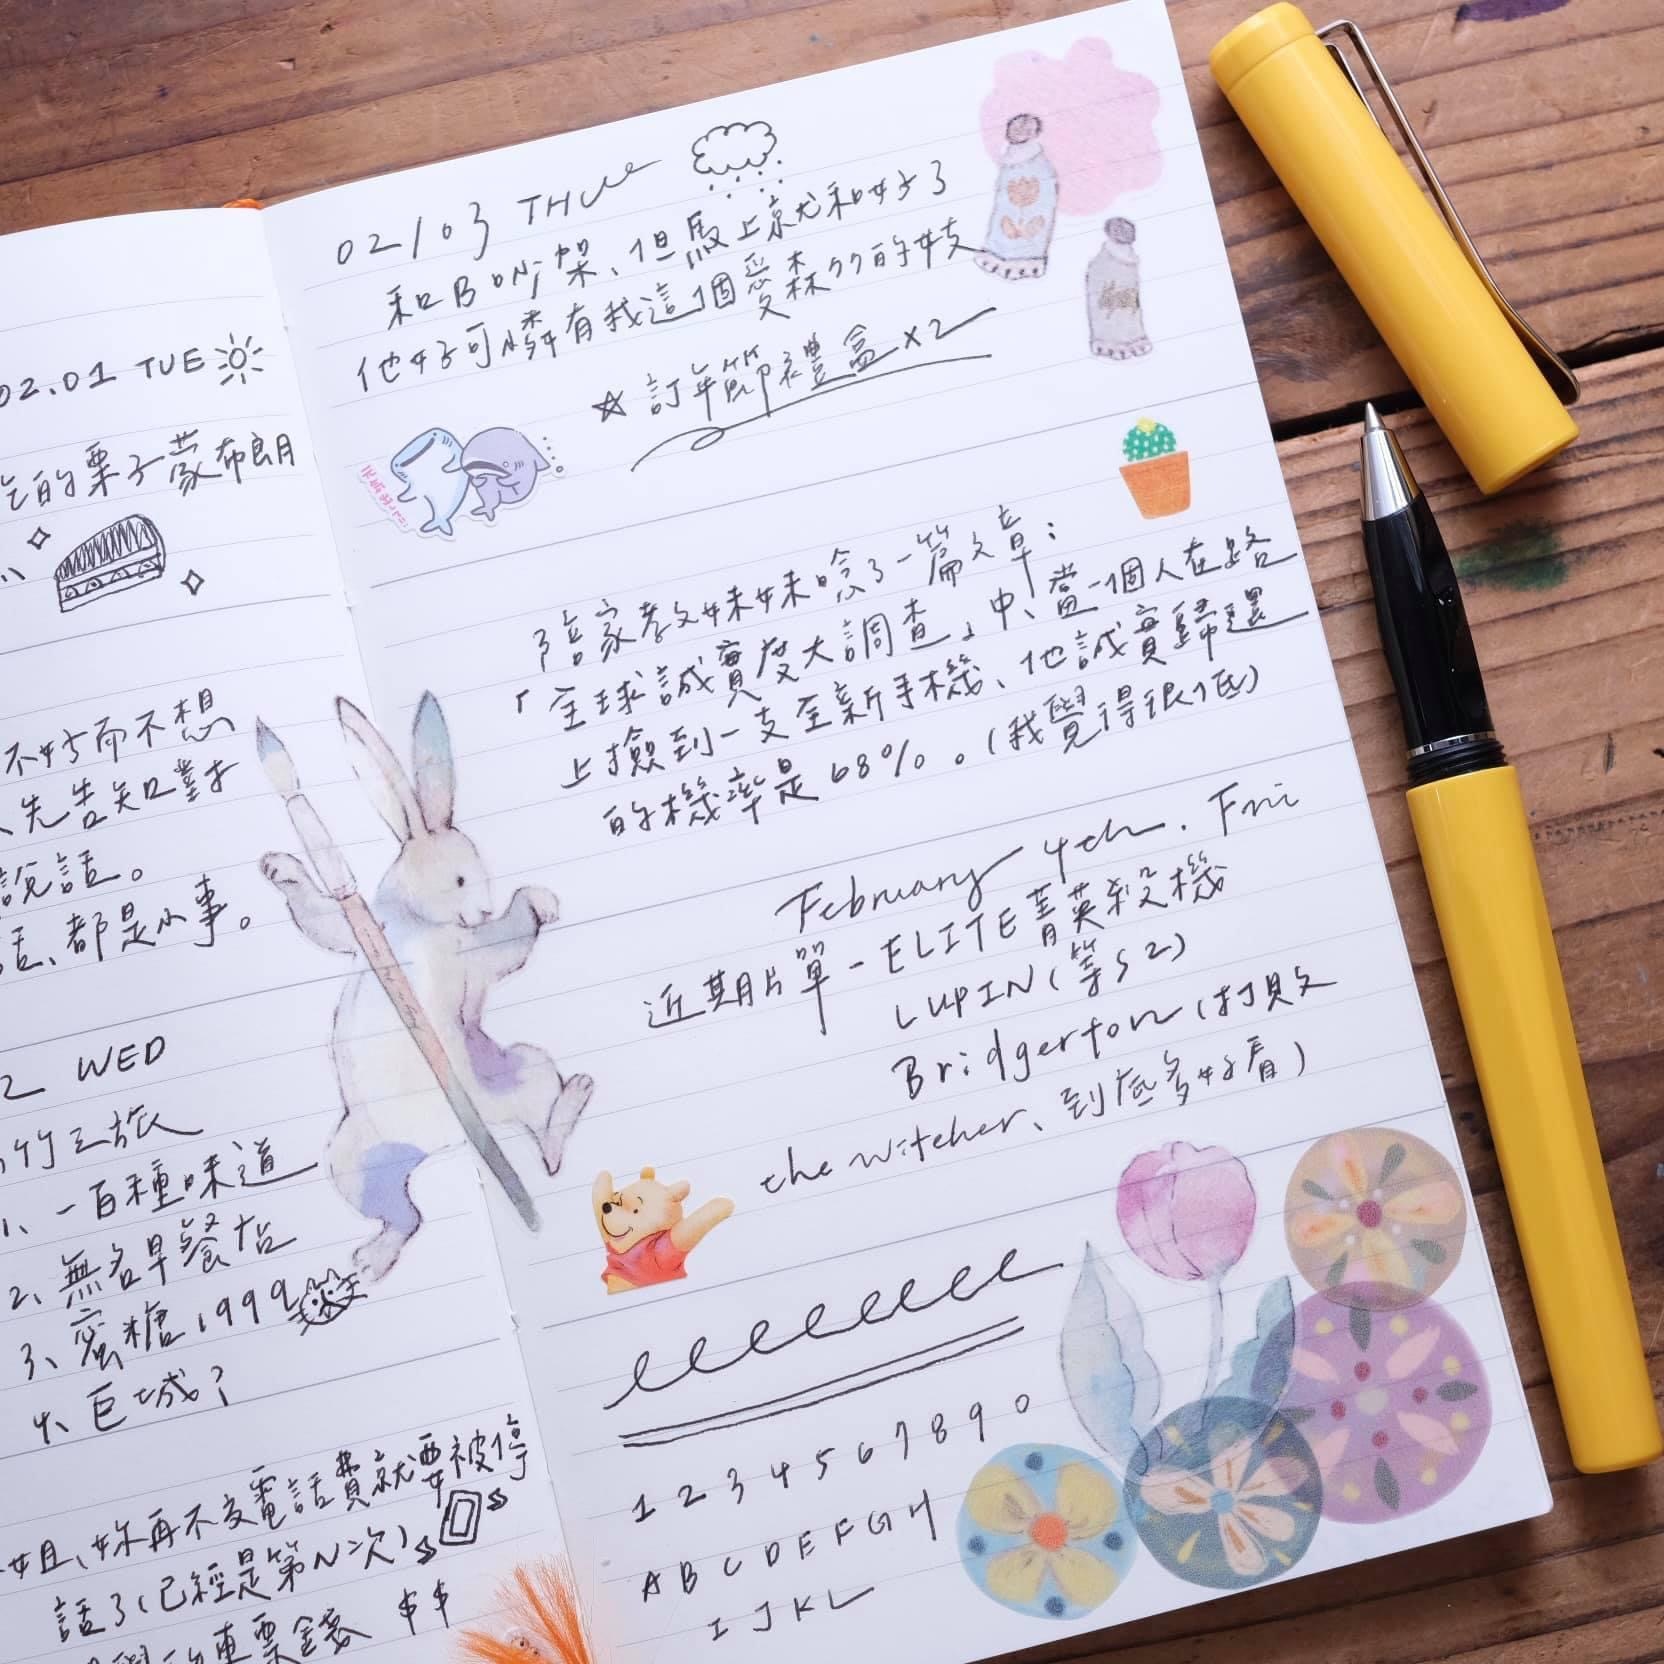 02.01 TUE
吃的栗子蒙布朗
不好而不想
、先告知對才
說話。
話、都是小事。
2 WED
竹之旅
1、一百種味道
2、無名早餐店
3、蜜糖1999
4、巨城?
姐、妳再不交電話費就要被停
話了(已經是第N次)
車票錢 $$
02/03 THUR
和B吵架、但馬上就和好了
他好可憐有我這個愛森77的女友
☆ 訂年節禮盒×2
陪家教妹妹唸了一篇文章:
「全球誠實度大調查」中、當一個人在路
上撿到一支全新手機、他誠實歸還
的機率是68%。(我覺得很低)
February 4th. Fri
近期片單-ELITE菁英殺機
LUPIN(等S2)
Bridgerton(打敗
the witcher、到底多好看)
1 2 3 4 5 6 7 8 9 0
A B C D E F G H
I J K L